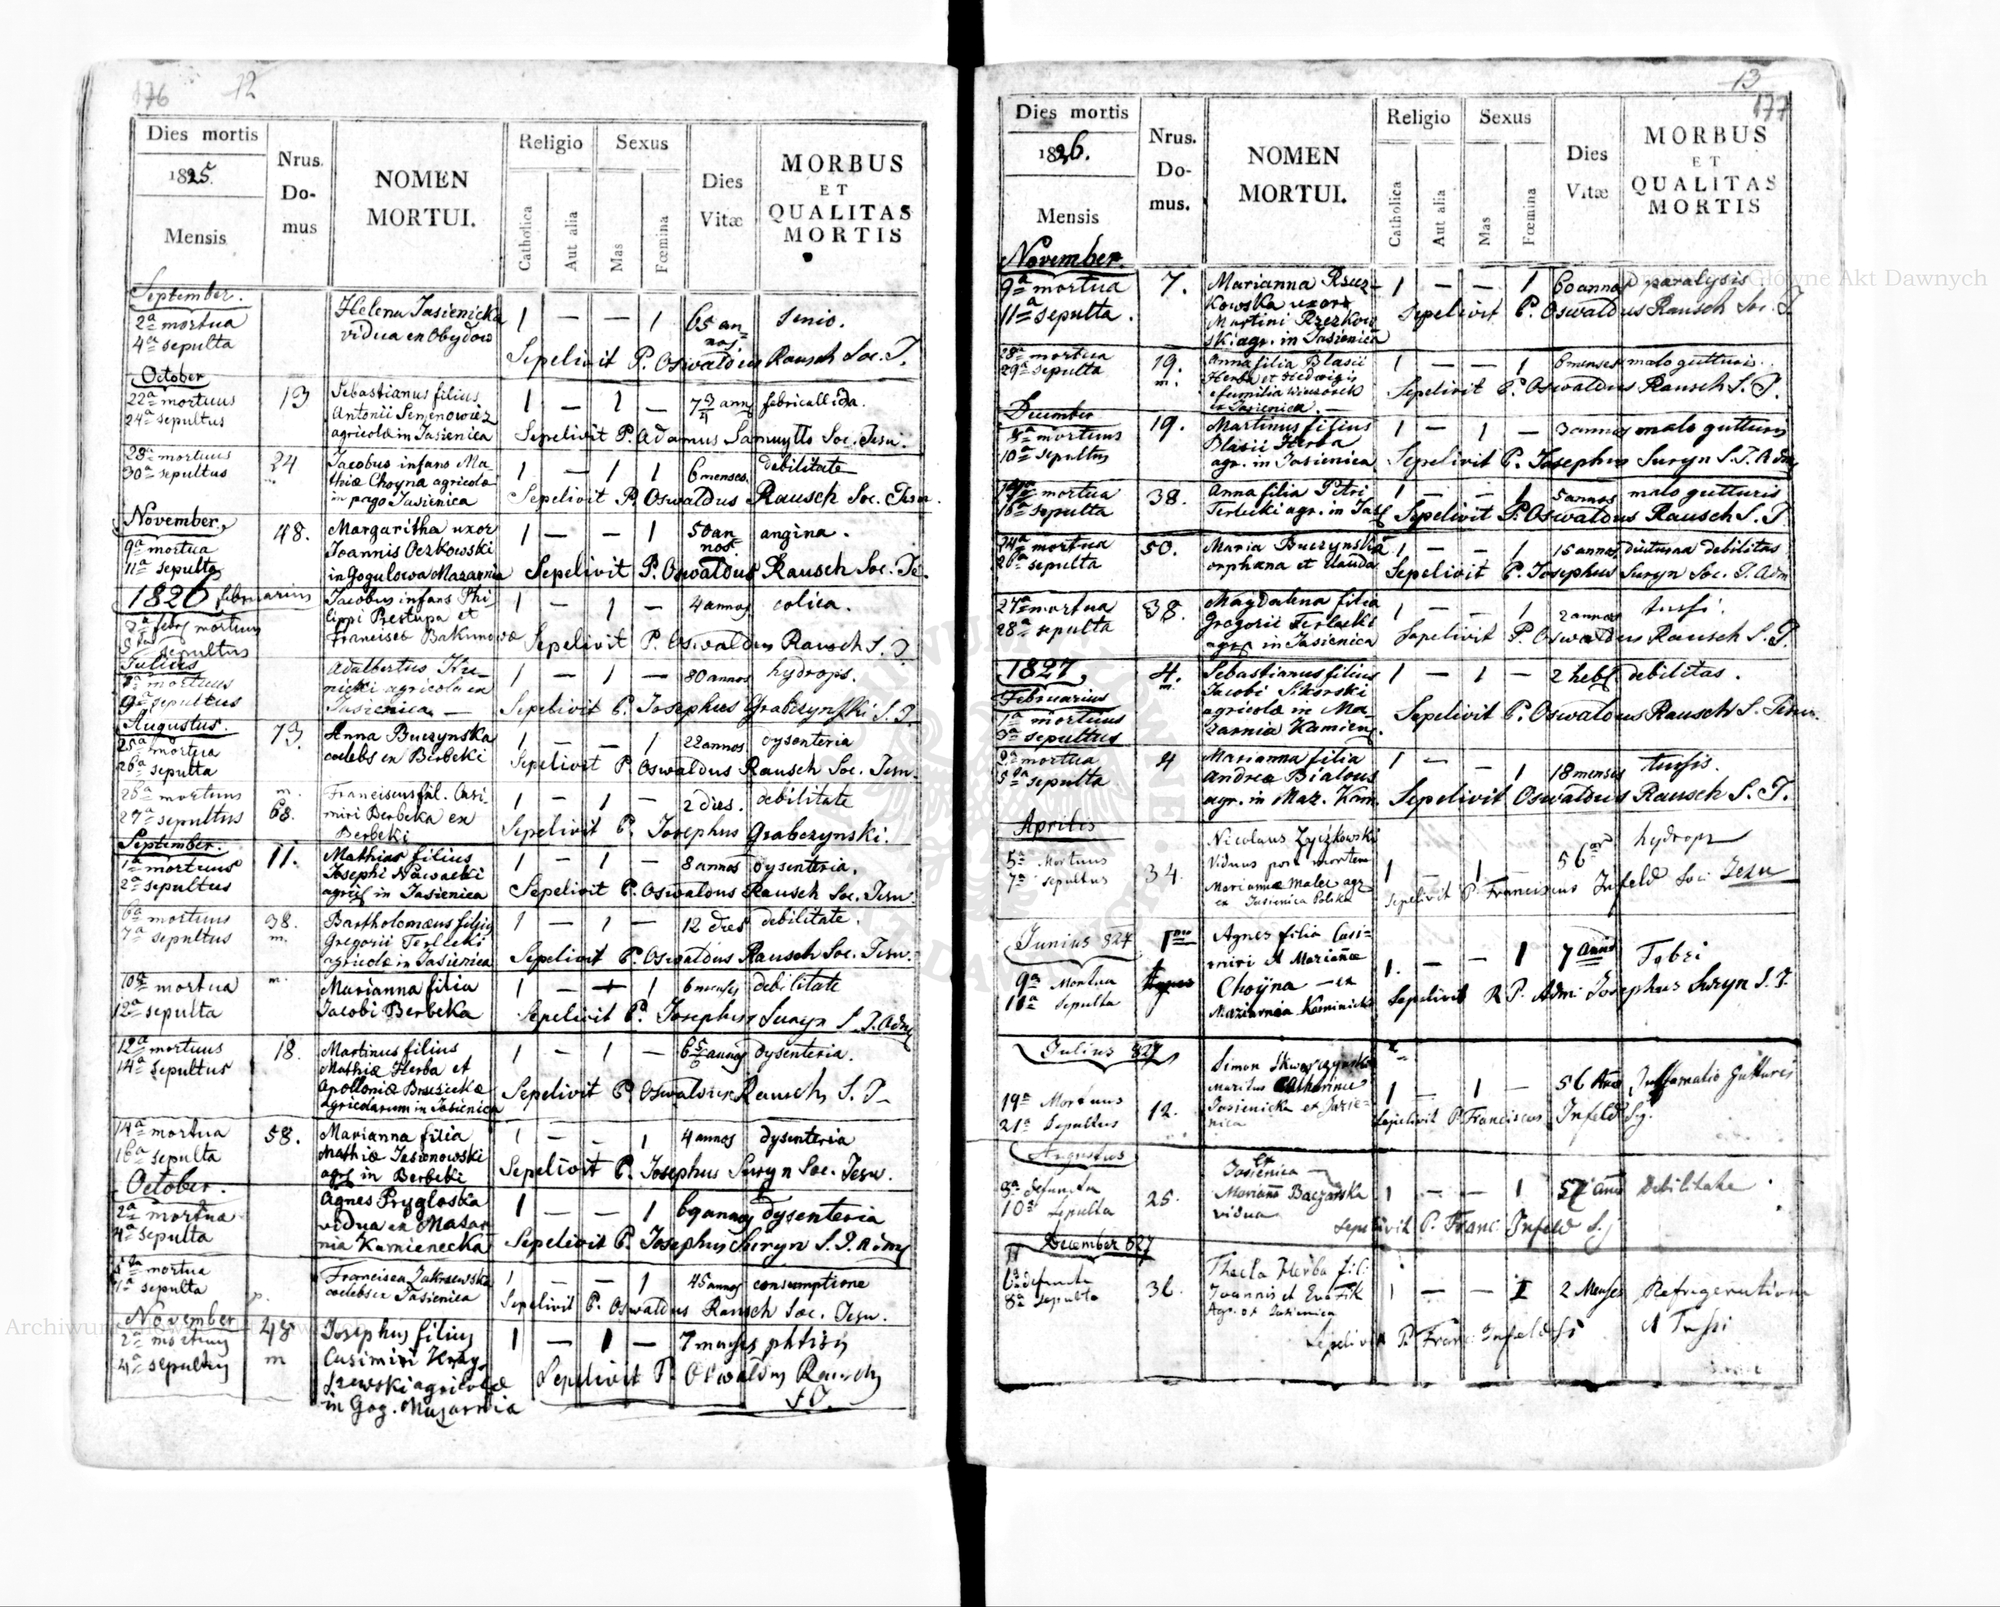 176 12
Dies mortis
1825.
Mensis
Nrus. Domus
NOMEN MORTUI.
Religio
Catholica
Aut alia
Sexus
Mas
Fœmina
Dies Vitæ
MORBUS
ET
QUALITAS
MORTIS
September.
2a mortua
4a sepulta
Helena Jasienicka
vidua ex Obydow
1 — — 1 65 annos. senio.
Sepelivit P. Oswaldus Rausch Soc. J.
October
22a mortuus
24a sepultus
13
Sebastianus filius
Antonii Semenowicz
agricolæ in Jasienica
1 — 1 —
febri callida.
Sepelivit P. Adamus Samuytto Soc. Jesu.
28a mortuus
30a sepultus
24
Jacobus infans Ma-
thiæ Choyna agricolæ
in pago Jasienica
1 — 1 1 6 menses. debilitate
Sepelivit P. Oswaldus Rausch Soc. Jesu.
November
9a mortua
11a sepulta
48.
Margaritha uxor
Joannis Oczkowski
in Gogulowa Mazarnia
1 — — 1 50 annos. angina.
Sepelivit P. Oswaldus Rausch Soc. Je.
1826 februarius
mortuus
sepultus
Jacobus infans Phi-
lippi Prestupa et
1 — 1 — 4 annos colica.
Sepelivit P. Oswaldus Rausch S. J.
Julius
8a mortuus
9a sepultus
Adalbertus
agricola ex
Jasienica —
1 — 1 — 80 annos hydrops.
Sepelivit P. Josephus Grabczynski S. J.
Augustus.
25a mortua
26a sepulta
73.
Anna Buczynska
coelebs ex Berbeki
1 — — 1 22 annos dysenteria
Sepelivit P. Oswaldus Rausch Soc. Jesu.
26a mortuus
27a sepultus
m.
68.
Franciscus fil. Casi-
miri Berbeka ex
Berbeki
1 — 1 — 2 dies. debilitate
Sepelivit P. Josephus Grabczynski.
September.
1a mortuus
2a sepultus
11.
Mathias filius
Josephi Nawacki
in Jasienica
1 — 1 — 8 annos dysenteria.
Sepelivit P. Oswaldus Rausch Soc. Jesu.
6a mortuus
7a sepultus
38.
m.
Bartholomæus filius
Gregorii Terlecki
agricolæ in Jasienica
1 — 1 — 12 dies debilitate.
Sepelivit P. Oswaldus Rausch Soc. Jesu.
10a mortua
12a sepulta
m.
Marianna filia
Jacobi Berbeka
1 — 1 6 menses debilitate
Sepelivit P. Josephus Suryn S. J. Adm
12a mortuus
14a sepultus
18.
Martinus filius
Mathiæ Herba et
Apolloniæ
agricolarum in Jasienica
1 — 1 — annos dysenteria.
Sepelivit P. Oswaldus Rausch S. J.
14a mortua
16a sepulta
58.
Marianna filia
Mathiæ Jasionowski
in Berbeki
1 — — 1 4 annos dysenteria
Sepelivit P. Josephus Suryn Soc. Jesu.
October.
2a mortua
4a sepulta
Agnes Prygloska
vidua ex Mazar
nia Kamienecka
1 — — 1 69 annos dysenteria
Sepelivit P. Josephus Suryn S. J. Adm
mortua
7a sepulta
p.
Francisca
coelebs ex Jasienica
1 — — 1 45 annos consumptione
Sepelivit P. Oswaldus Rausch Soc. Jesu.
November
2a mortuus
4a sepultus
48
m
Josephus filius
Casimiri
agricolæ
in Gog. Mazarnia
1 — 1 — 7 menses phtisis
Sepelivit P. Oswaldus Rausch
S J.
13
177
Dies mortis
1826.
Mensis
Nrus. Domus.
NOMEN
MORTUI.
Religio
Catholica
Aut alia
Sexus
Mas
Fœmina
Dies
Vitæ
MORBUS
ET
QUALITAS
MORTIS
November.
9a mortua
11a sepulta.
7.
Marianna Rzez-
kowska uxor
Martini Rzezkow
ski agr. in Jasienica
1 — — 1 60 annos paralysis
Sepelivit P. Oswaldus Rausch Soc. J
28a mortua
29a sepulta
19.
m.
Anna filia Blasii
Herba et Hedwigis
ex Jasienica.
1 — — 1 6 menses malo gutturis.
Sepelivit P. Oswaldus Rausch S. J.
December
8a mortuus
10a sepultus
19.
Martinus filius
Blasii Herba
agr. in Jasienica
1 — 1 — 3 annos malo gutturis
Sepelivit P. Josephus Suryn S. J. Adm
mortua
16a sepulta
38.
Anna filia Petri
Terlecki agr. in Jas
1 — — 1 5 annos malo gutturis
Sepelivit P. Oswaldus Rausch S. J
24a mortua
26a sepulta
50.
Maria Buczynska
orphana et
1 — — 1 15 annos diuturna debilitas
Sepelivit P. Josephus Suryn Soc. J. Adm
27a mortua
28a sepulta
38.
Magdalena filia
Gregorii Terlecki
in Jasienica
1 — — 1 2 annos tussi.
Sepelivit P. Oswaldus Rausch S. J.
1827.
Februarius
1a mortuus
3a sepultus
4.
m.
Sebastianus filius
Jacobi Sikorski
agricolæ in Ma-
zarnia Kamien.
1 — 1 — 2 hebd debilitas.
Sepelivit P. Oswaldus Rausch S. Jesu.
mortua
sepulta
4
Marianna filia
Andreæ Bialous
agr. in Maz. Kam.
1 — — 1 18 menses tussis.
Sepelivit Oswaldus Rausch S. J.
Aprilis
5a Mortuus
7a sepultus
34.
Nicolaus Zyczkowski
Viduus post mortem
Mariannæ Malec agr
ex Jasienica Polska
1 — 1 — 56 hydrops
Sepelivit P. Franciscus Infeld Soc Jesu
Junius 827
9a Mortua
11a Sepulta
Agnes filia Casi-
miri et Mariannæ
Choyna — ex
Maziarnia Kaminicka
1. — — 1 7 annis
Sepelivit R. P. Adm: Josephus Suryn S. J.
Julius 827
19a Mortuus
21a Sepultus
12.
Simon Skwarczynski
Maritus Catharinæ
Jasienicka ex Jasie-
nica
1 — 1 — 56 Gutturis
Sepelivit P. Franciscus Infeld Sj.
Augustus
8a Defuncta
10a Sepulta
25.
ex
Jasienica —
Vidua
1 — — 1 57 Debilitate
Sepelivit P. Franc: Infeld S. j
December 827
6a Defuncta
8a Sepulta
36.
Thecla Herba fil:
Joannis et
Agr. ex Jasienica
1 — — 1 2 Menses Refrigeratione
et Tussi
Sepelivit P. Franc: Infeld Sj
Archiwum Główne Akt Dawnych
Archiwum Główne Akt Dawnych
ARCHIWUM GŁÓWNE AKT DAWNYCH